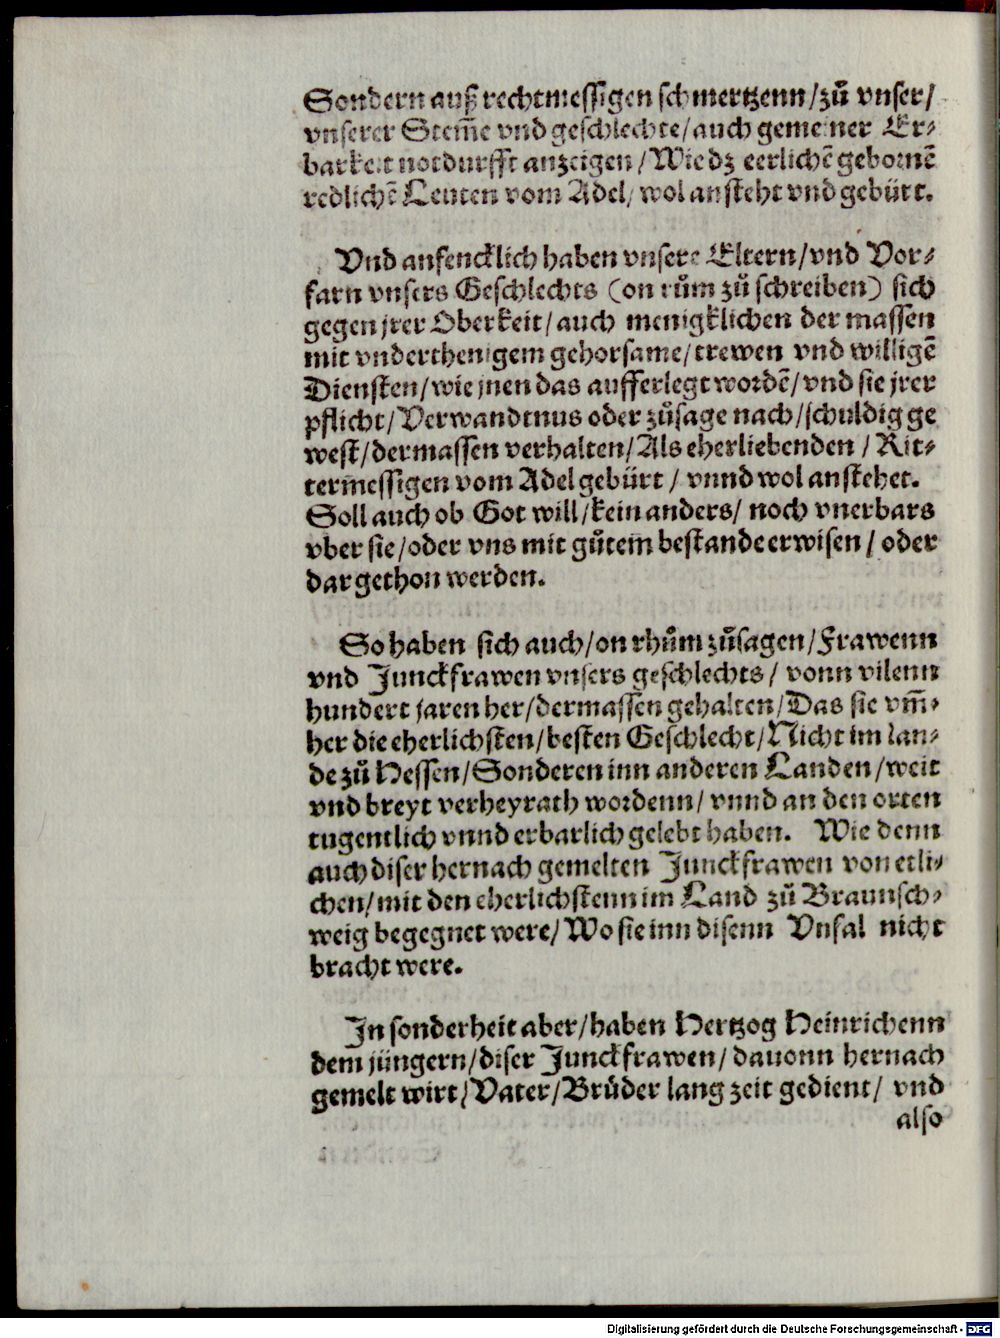 Sondern auß rechtmessigen schmertzenn/zů vnser/
vnserer Stem̃e vnd geschlechte/auch gemeiner Er⸗
barkeit notdurfft anzeigen/Wie dz eerlichẽ gebornẽ
redlichẽ Leuten vom Adel/wol ansteht vnd gebürt.
Vnd anfencklich haben vnsere Eltern/vnd Vor⸗
farn vnsers Geschlechts (on rům zů schreiben) sich
gegen jrer Oberkeit/auch menigklichen der massen
mit vnderthenigem gehorsame/trewen vnd willigẽ
Diensten/wie jnen das aufferlegt wordẽ/vnd sie jrer
pflicht/Verwandtnus oder zůsage nach/schuldig ge
west/dermassen verhalten/Als eherliebenden/Rit⸗
termessigen vom Adel gebürt/vnnd wol anstehet.
Soll auch ob Got will/kein anders/noch vnerbars
vber sie/oder vns mit gůtem bestande erwisen/oder
dargethon werden.
So haben sich auch/on rhům zůsagen/Frawenn
vnd Junckfrawen vnsers geschlechts/vonn vilenn
hundert jaren her/dermassen gehalten/Das sie vm̃⸗
her die eherlichsten/besten Geschlecht/Nicht im lan⸗
de zů Hessen/Sonderen inn anderen Landen/weit
vnd breyt verheyrath wordenn/vnnd an den orten
tugentlich vnnd erbarlich gelebt haben. Wie denn
auch diser hernach gemelten Junckfrawen von etli⸗
chen/mit den eherlichstenn im Land zů Braunsch⸗
weig begegnet were/Wo sie inn disenn Vnfal nicht
bracht were.
In sonderheit aber/haben Hertzog Heinrichenn
dem jüngern/diser Junckfrawen/dauonn hernach
gemelt wirt/Vater/Brůder lang zeit gedient/vnd
also
Digitalisierung gefördert durch die Deutsche Forschungsgemeinschaft - DFG